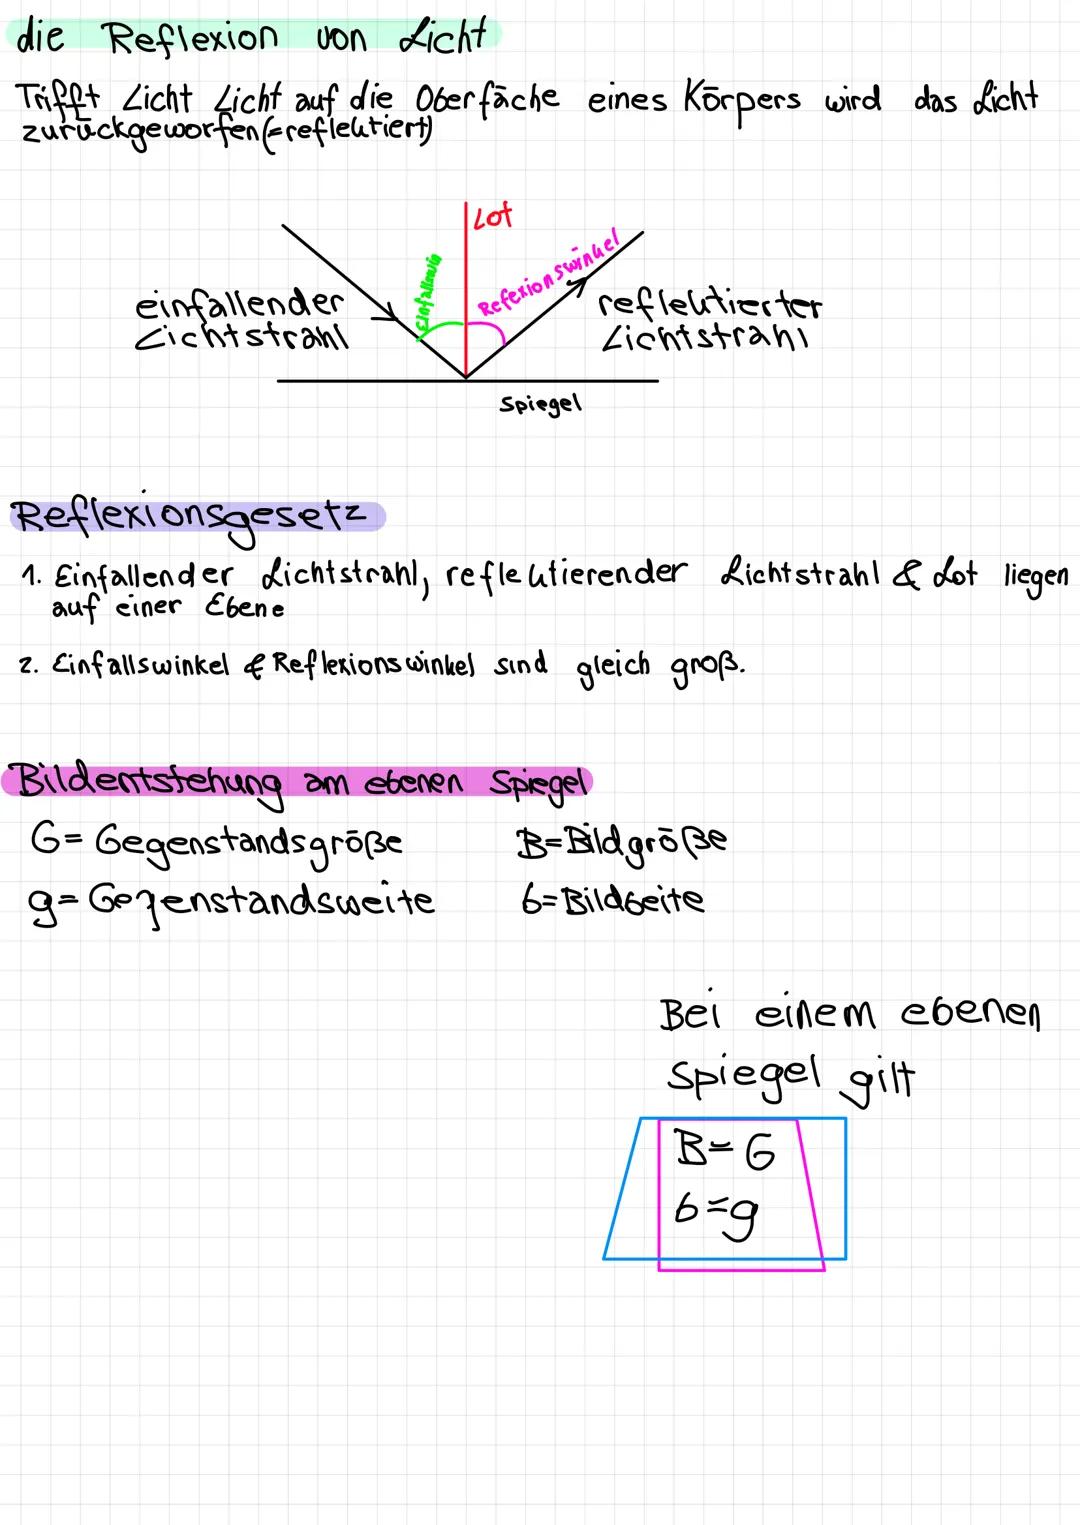 die Reflexion von Licht
Trifft Licht Licht auf die Oberfäche eines Körpers wird das Licht
zurückgeworfen (=reflektiert)
Lot
Einfallswin
Refexionswinkel
einfallender
Lichtstrahl
reflektierter
Lichtstrahl
Spiegel
Reflexionsgesetz
1. Einfallender Lichtstrahl, reflektierender Lichtstrahl & Lot liegen
auf einer Ebene
2. Einfallswinkel & Reflexionswinkel sind gleich groß.
Bildentstehung am ebenen Spiegel
G= Gegenstandsgröße B=Bildgröße
g= Gegenstandsweite b=Bildbeite
Bei einem ebenen
Spiegel gilt
B= G
b=g